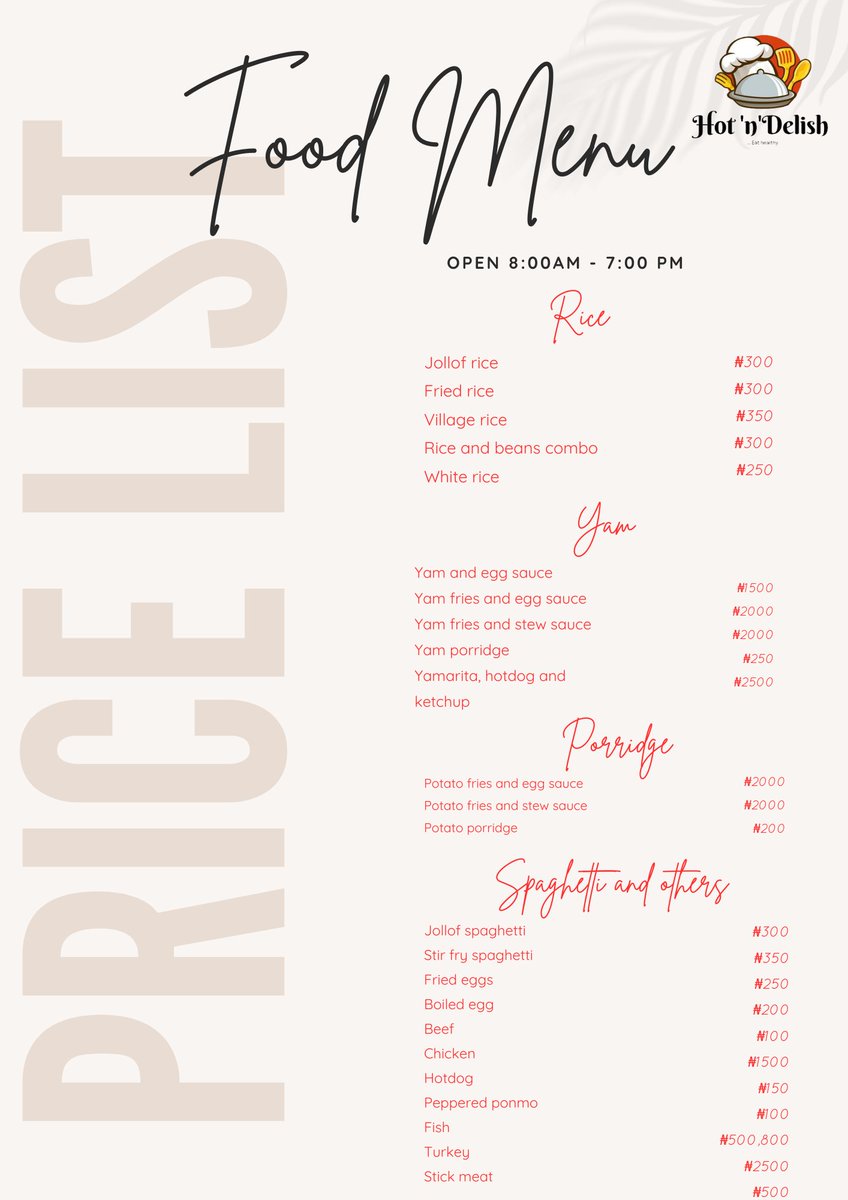 Food Menu
Hot 'n' Delish
... Eat healthy
PRICE LIST
OPEN 8:00AM - 7:00 PM
Rice
Jollof rice ₦300
Fried rice ₦300
Village rice ₦350
Rice and beans combo ₦300
White rice ₦250
Yam
Yam and egg sauce ₦1500
Yam fries and egg sauce ₦2000
Yam fries and stew sauce ₦2000
Yam porridge ₦250
Yamarita, hotdog and ₦2500
ketchup
Porridge
Potato fries and egg sauce ₦2000
Potato fries and stew sauce ₦2000
Potato porridge ₦200
Spaghetti and others
Jollof spaghetti ₦300
Stir fry spaghetti ₦350
Fried eggs ₦250
Boiled egg ₦200
Beef ₦100
Chicken ₦1500
Hotdog ₦150
Peppered ponmo ₦100
Fish ₦500,800
Turkey ₦2500
Stick meat ₦500